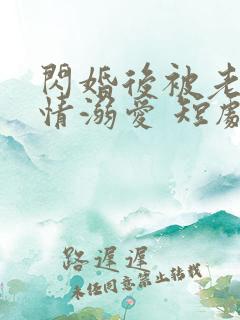 閃婚後被老
情溺愛 短劇
路遲遲
未经同意禁止转载